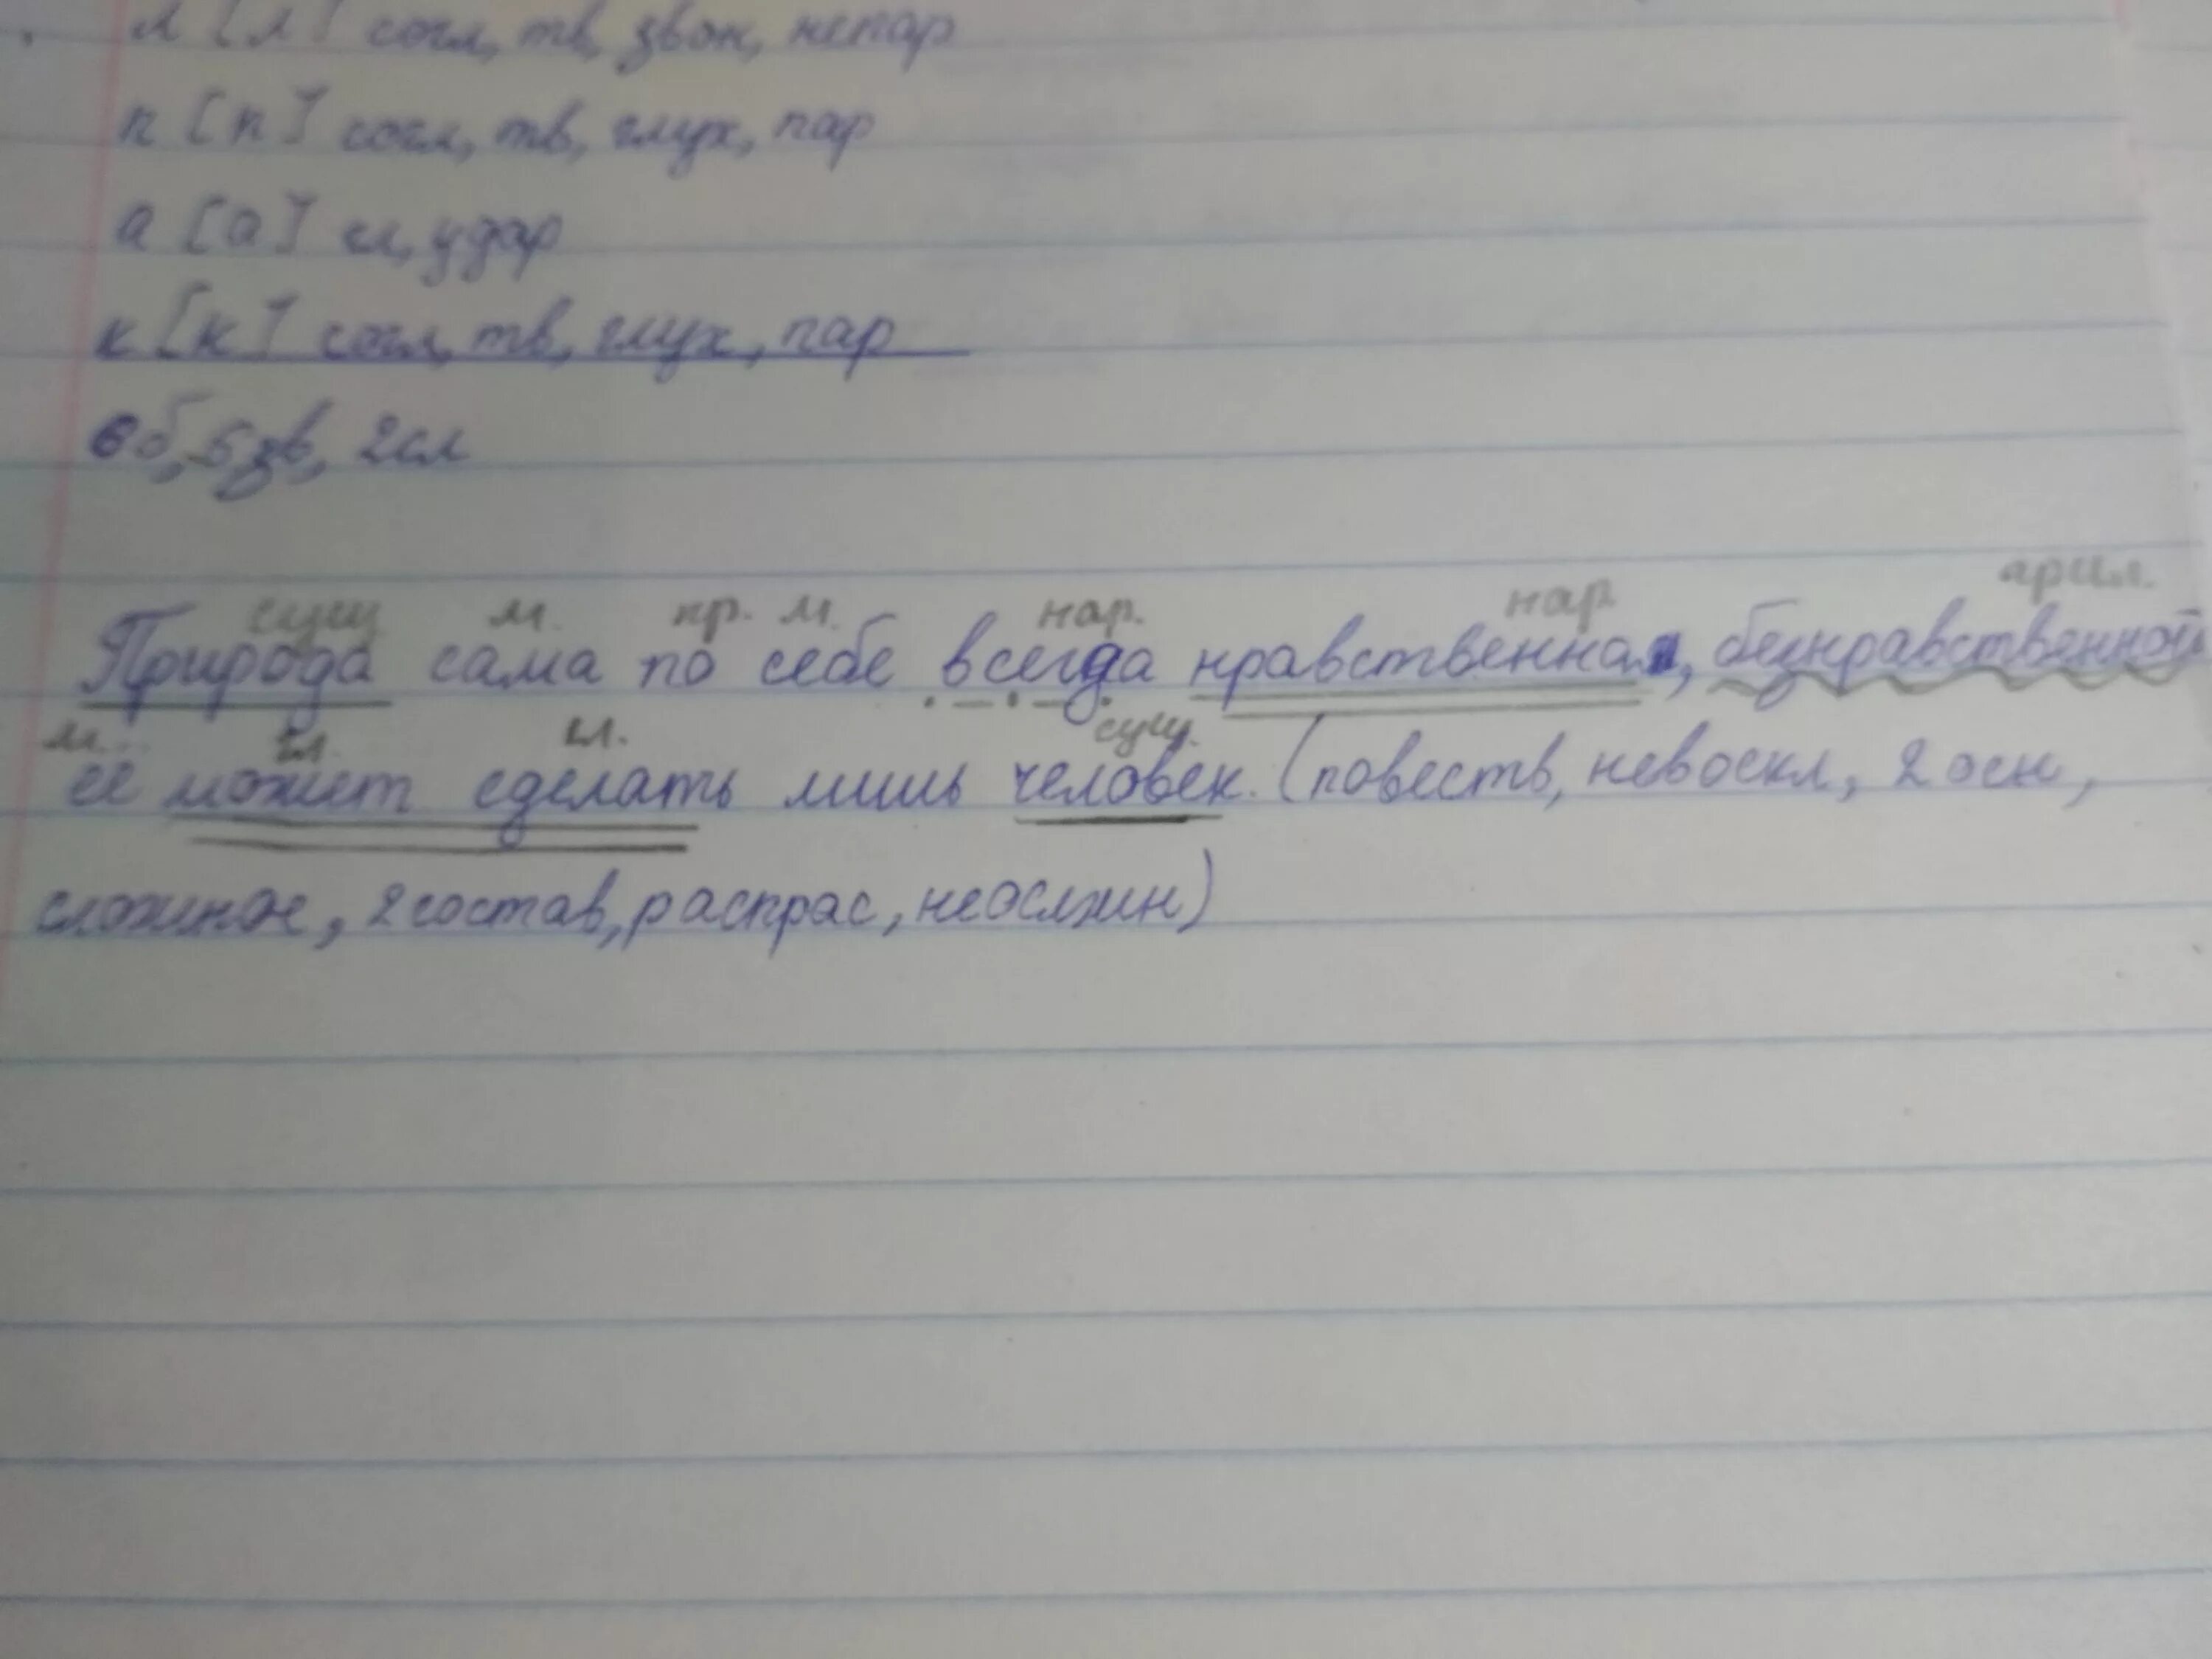 л [л] согл, тв, звон, непар
п [п] согл, тв, глух, пар
а [а] гл, удар
к [к] согл, тв, глух, пар
6б, 5зв, 2сл
сущ. м. пр. м. нар. нар. прил.
Природа сама по себе всегда нравственна, безнравственной
м. гл. гл. сущ.
её может сделать лишь человек. (повеств, невоскл, 2 осн,
сложное, 2состав, распрас, неослжн)